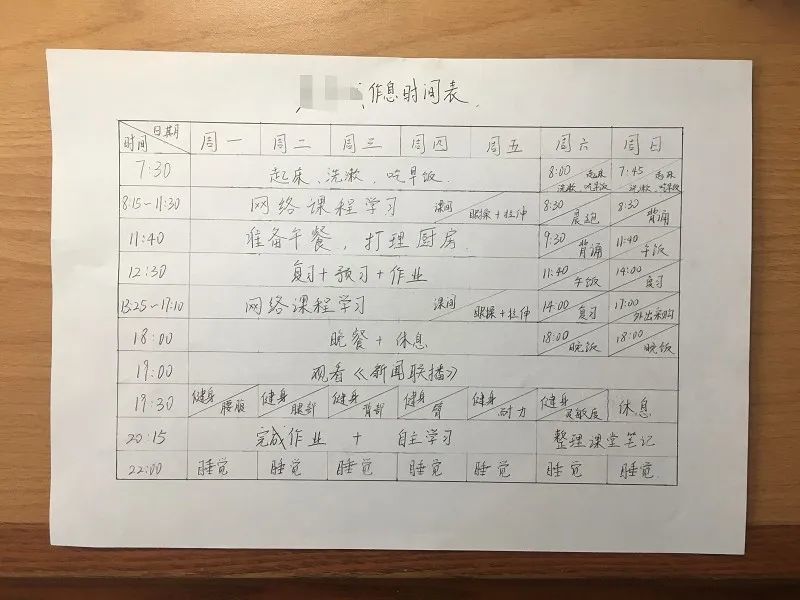 作息时间表
日期 时间 周一 周二 周三 周四 周五 周六 周日
7:30 起床、洗漱、吃早饭 8:00 起床 洗漱 吃早饭 7:45 起床 洗漱、吃早饭
8:15-11:30 网络课程学习 课间 眼操+拉伸 8:30 晨跑 8:30 背诵
11:40 准备午餐，打理厨房 9:30 背诵 11:40 午饭
12:30 复习+预习+作业 11:40 午饭 14:00 复习
13:25-17:10 网络课程学习 课间 眼操+拉伸 14:00 复习 17:00 外出采购
18:00 晚餐+休息 18:00 晚饭 18:00 晚饭
19:00 观看《新闻联播》
19:30 健身 腰腹 健身 腿部 健身 背部 健身 臂 健身 耐力 健身 灵敏度 休息
20:15 完成作业 + 自主学习 整理课堂笔记
22:00 睡觉 睡觉 睡觉 睡觉 睡觉 睡觉 睡觉